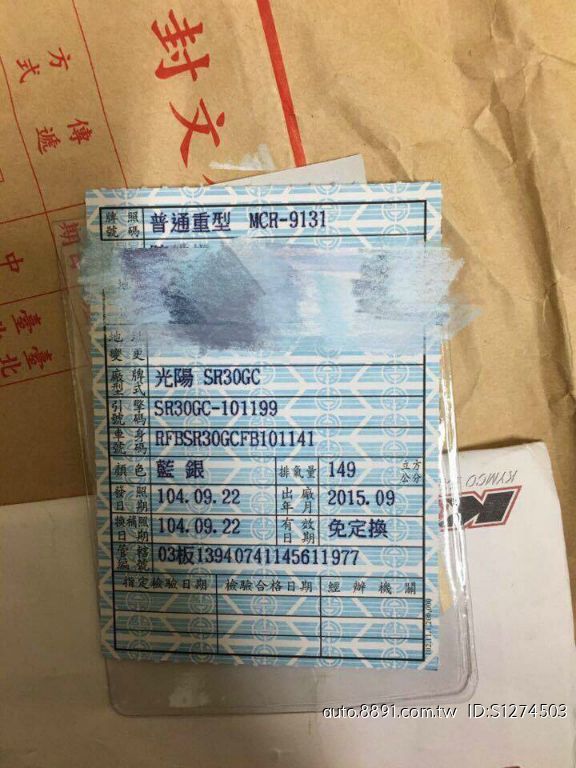 封文
傳遞
方式
期
中
臺
臺北
牌照號碼 普通重型 MCR-9131
地
地 變更
廠牌型式 光陽 SR30GC
引擎號碼 SR30GC-101199
車身號碼 RFBSR30GCFB101141
顏色 藍 銀 排氣量 149 立方公分
發照日期 104.09.22 出廠年月 2015.09
換補照日期 104.09.22 有效日期 免定換
管轄編號 03板13940741145611977
指定檢驗日期 檢驗合格日期 經辦機關
KYMCO
auto.8891.com.tw ID:S1274503